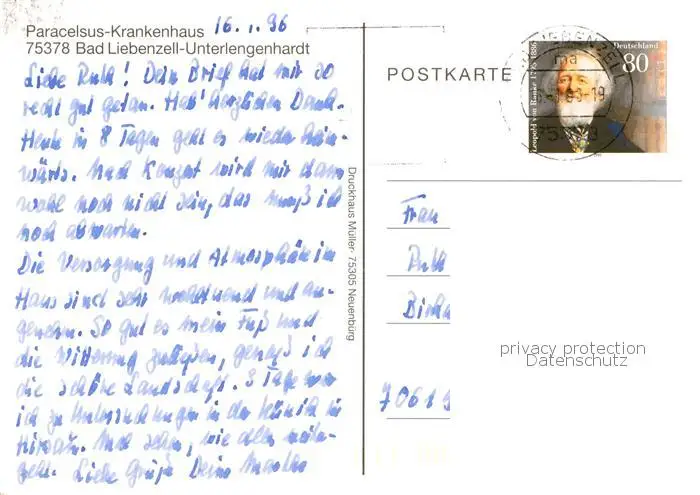 Paracelsus-Krankenhaus 16.1.96
75378 Bad Liebenzell-Unterlengenhardt
Liebe Ruth! Dein Brief hat mir so
recht gut getan. Hab' herzlichen Dank.
Heute in 8 Tagen geht es wieder heim-
wärts. Nach Konzert wird mir dann
wohl noch nicht sein, das muß ich
noch abwarten.
Die Versorgung und Atmosphäre im
Haus sind sehr wohltuend und an-
genehm. So gut es mein Fuß und
die Witterung zuließen, genoß ich
die schöne Landschaft. 3 Tage war
ich zu Untersuchungen in der Klinik in
Hirsau. Mal sehen, wie alles weiter-
geht. Liebe Grüße Deine
Druckhaus Müller· 75305 Neuenbürg
POSTKARTE
Leopold von Ranke 1795-1886
Deutschland
80
Frau
Ruth
70619
privacy protection
Datenschutz